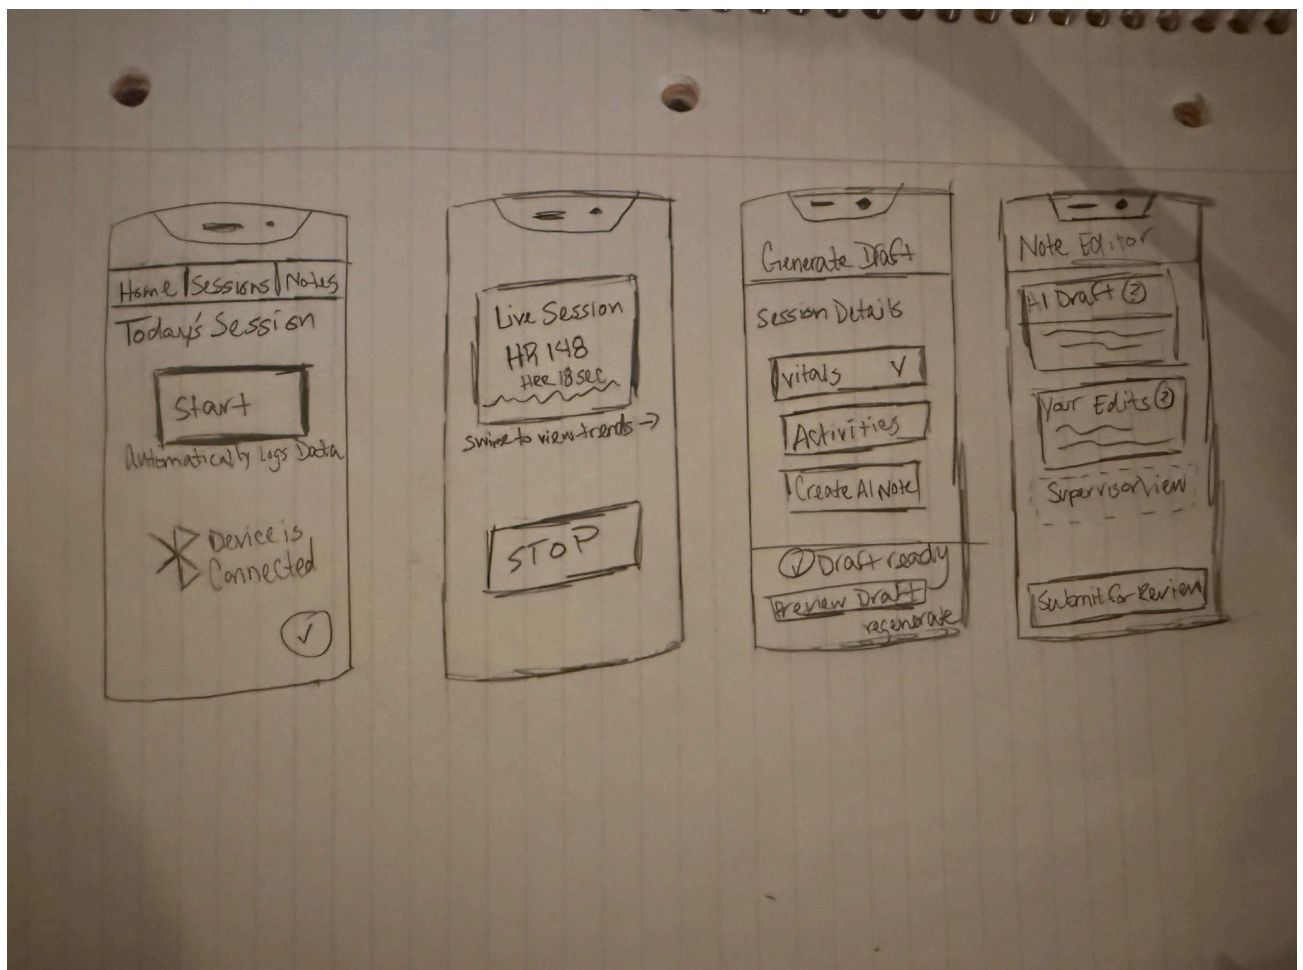 Home Sessions Notes
Today's Session
Start
Automatically Logs Data
Device is
Connected
Live Session
HR 148
18 sec
swipe to view trends →
STOP
Generate Draft
Session Details
Vitals ✓
Activities
Create AI Note
✓ Draft ready
Preview Draft
regenerate
Note Editor
AI Draft
Your Edits
Supervisor View
Submit for Review